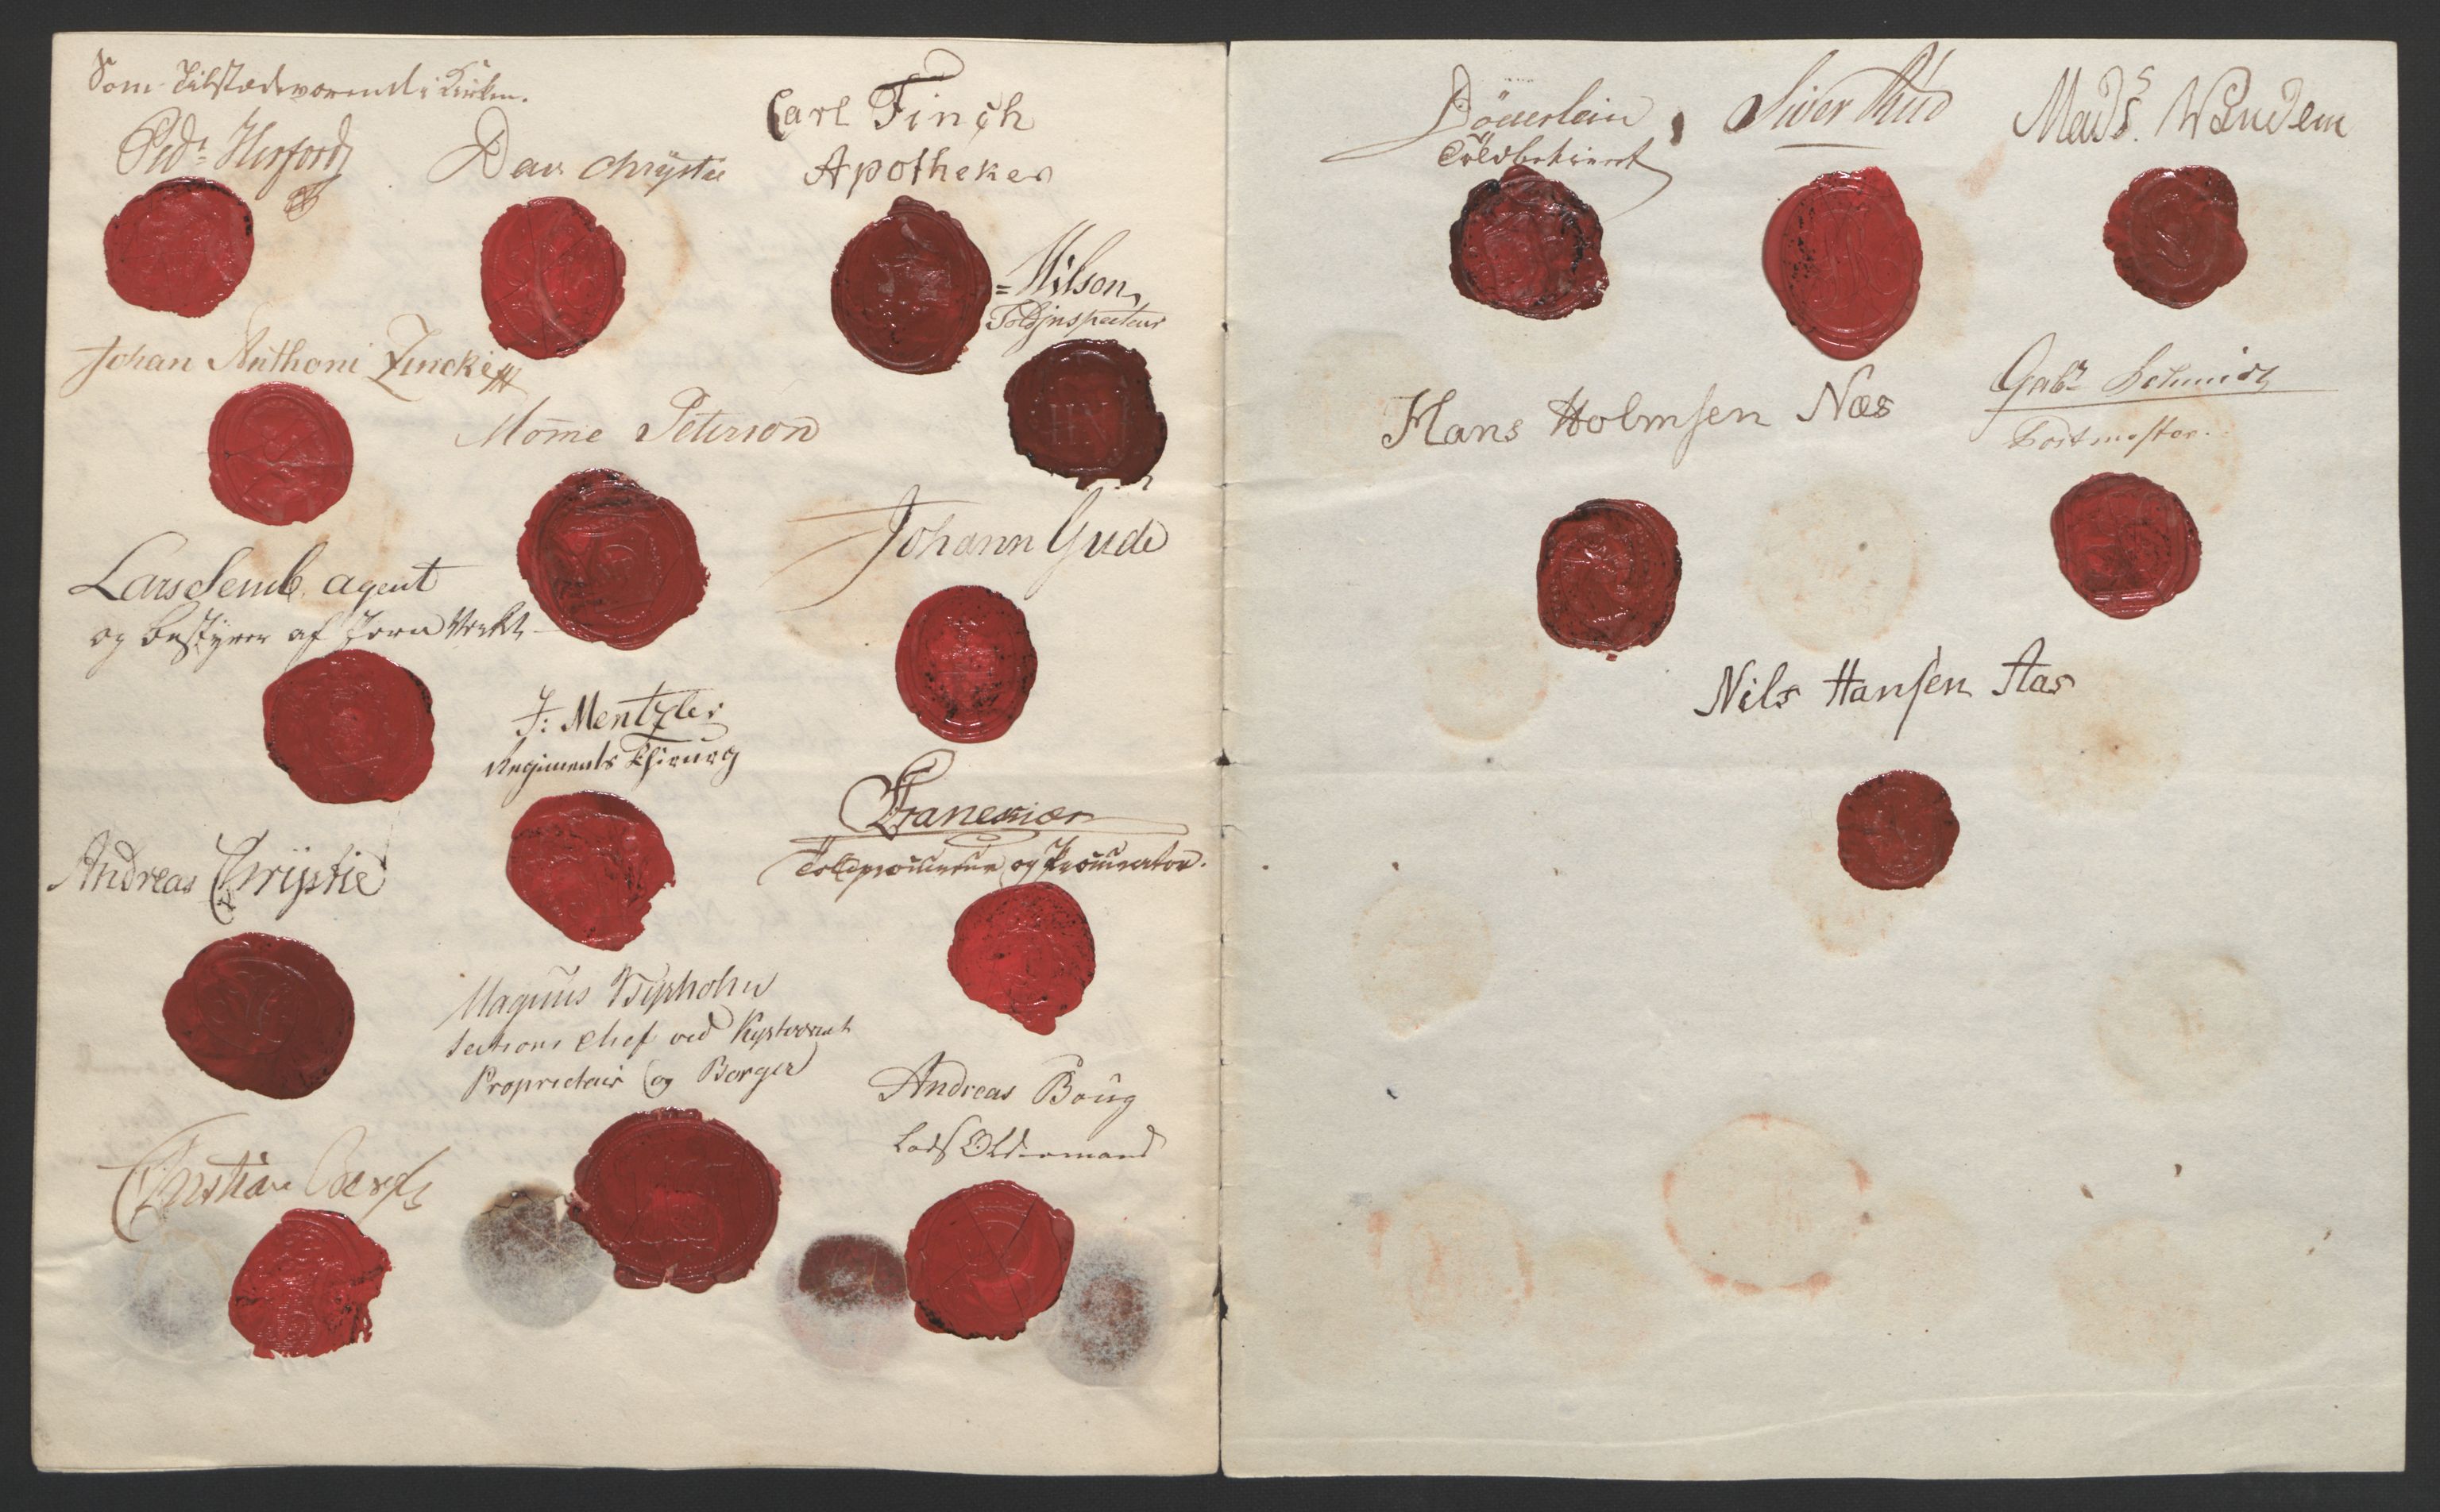 Som Tilstedeværende i Kirken.
Ped: Herfordt
Dav. Chrystie
Carl Finch
Apotheker
Nilson
Toldinspecteur
HN
Johan Anthoni Zincke
Momme Peterson
Johann Gude
Lars Semb. agent
og bestyrer af Jern Verket
J: Mentzler
Regiments Chirurg
Tranekiær
Toldprocureur og Procurator.
Andreas Chrystie
Magnus
Sections Chef ved Kystværnet
Proprietair og Borger
Andreas Boug
Lods Oldermand
Christian
Döderlein
Toldbetient
Siver
Mads. Wandem
Hans Holmsen Næs
Gab: Schmidt
Postmester.
Nils Hansen Aas